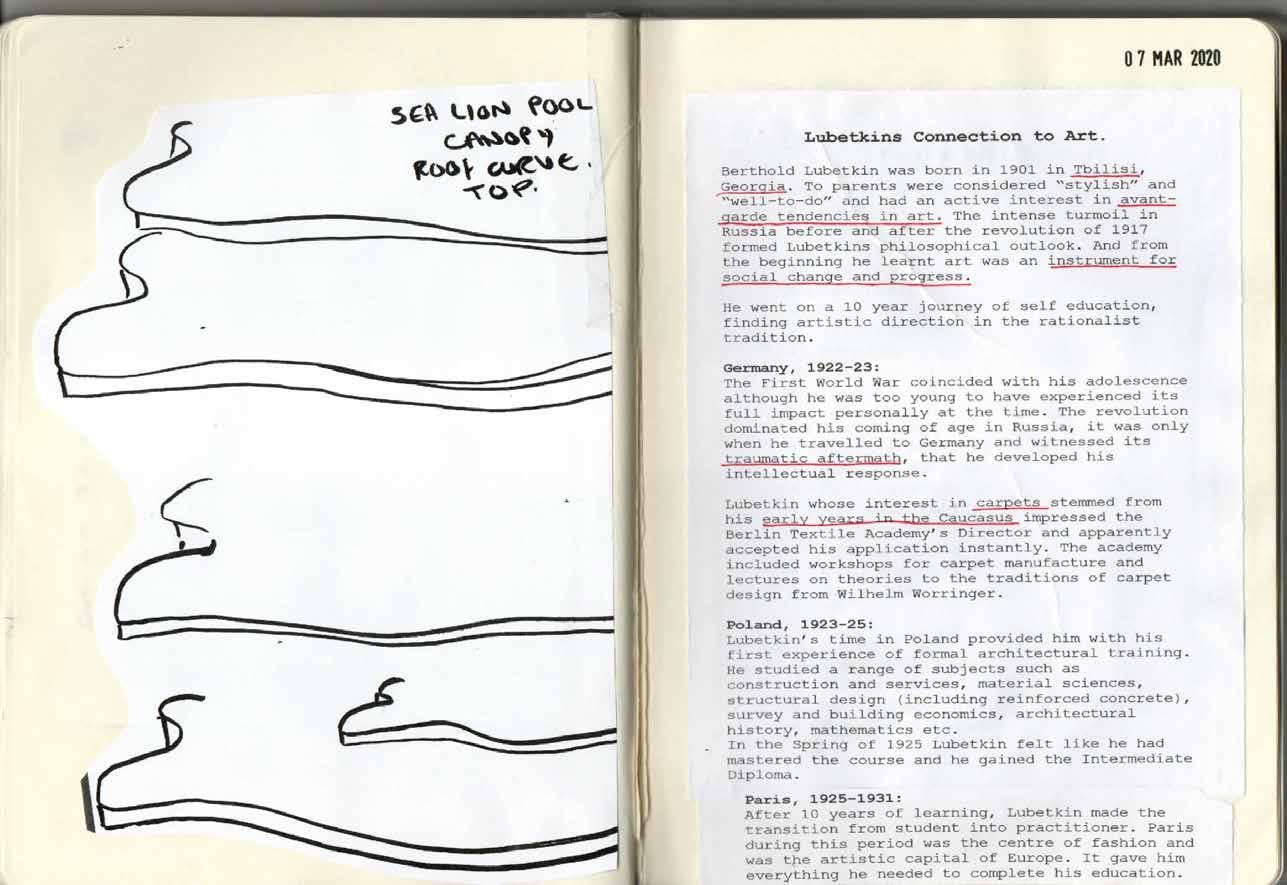 SEA LION POOL
CANOPY
ROOF CURVE.
TOP.
07 MAR 2020
Lubetkins Connection to Art.
Berthold Lubetkin was born in 1901 in Tbilisi,
Georgia. To parents were considered "stylish" and
"well-to-do" and had an active interest in avant-
garde tendencies in art. The intense turmoil in
Russia before and after the revolution of 1917
formed Lubetkins philosophical outlook. And from
the beginning he learnt art was an instrument for
social change and progress.
He went on a 10 year journey of self education,
finding artistic direction in the rationalist
tradition.
Germany, 1922-23:
The First World War coincided with his adolescence
although he was too young to have experienced its
full impact personally at the time. The revolution
dominated his coming of age in Russia, it was only
when he travelled to Germany and witnessed its
traumatic aftermath, that he developed his
intellectual response.
Lubetkin whose interest in carpets stemmed from
his early years in the Caucasus impressed the
Berlin Textile Academy's Director and apparently
accepted his application instantly. The academy
included workshops for carpet manufacture and
lectures on theories to the traditions of carpet
design from Wilhelm Worringer.
Poland, 1923-25:
Lubetkin's time in Poland provided him with his
first experience of formal architectural training.
He studied a range of subjects such as
construction and services, material sciences,
structural design (including reinforced concrete),
survey and building economics, architectural
history, mathematics etc.
In the Spring of 1925 Lubetkin felt like he had
mastered the course and he gained the Intermediate
Diploma.
Paris, 1925-1931:
After 10 years of learning, Lubetkin made the
transition from student into practitioner. Paris
during this period was the centre of fashion and
was the artistic capital of Europe. It gave him
everything he needed to complete his education.